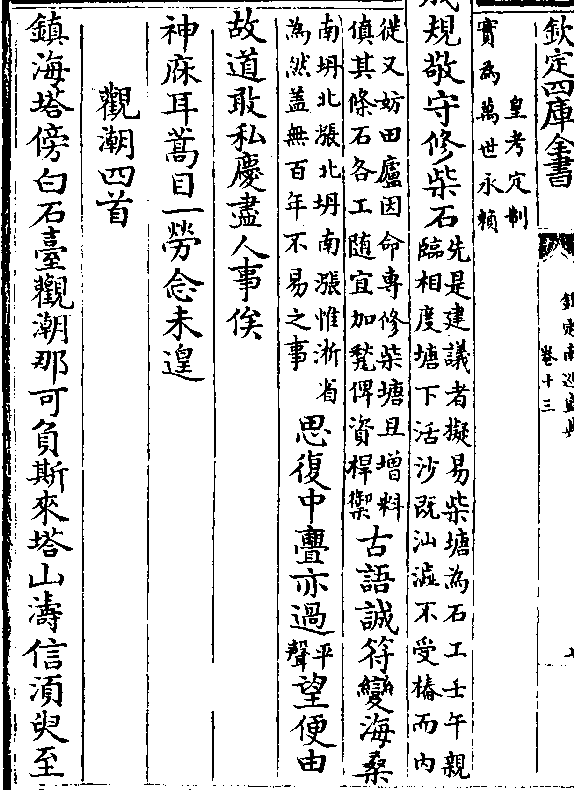 欽定四庫全書
欽定南巡盛典
卷十三
皇考定制
實為萬世永賴
成規敬守修柴石先是建議者擬易柴塘為石工壬午親
臨相度塘下活沙既汕澁不受樁而内
徙又妨田廬因命專修柴塘且增料
偵其條石各工随宜加甃俾資桿禦古語誠符變海桑
南坍北漲北坍南漲惟浙省
為然蓋無百年不易之事思復中亹亦過平聲望便由
故道敢私慶盡人事俟
神庥耳蒿目一勞念未遑
觀潮四首
鎮海塔傍白石臺觀潮那可負斯來塔山濤信須臾至